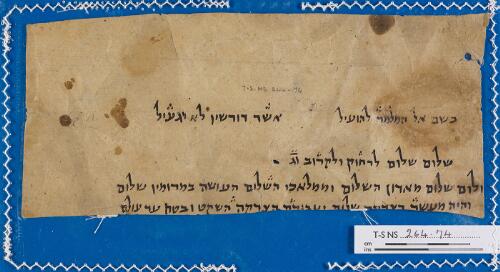 T-S. NS 264.74
בשם אל המלמד להועיל אשר דורשיו לא יגעיל
שלום שלום לרחוק ולקרוב וג
שלום מאדון השלום וממלאכי השלום העושה במרומיו שלום
והיה מעשה הצדקה שלום ועבודת הצדקה השקט ובטח עד עולם
T-S NS 264.74
cm
ins.